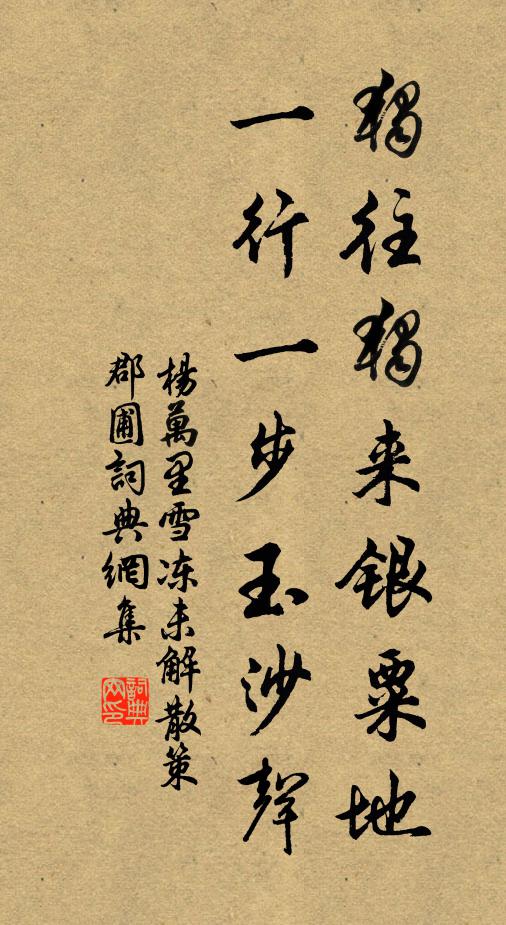 獨往獨来銀粟地
一行一步玉沙聲
楊萬里雪冻未解散策
郡圃詞典網集
詞典网印